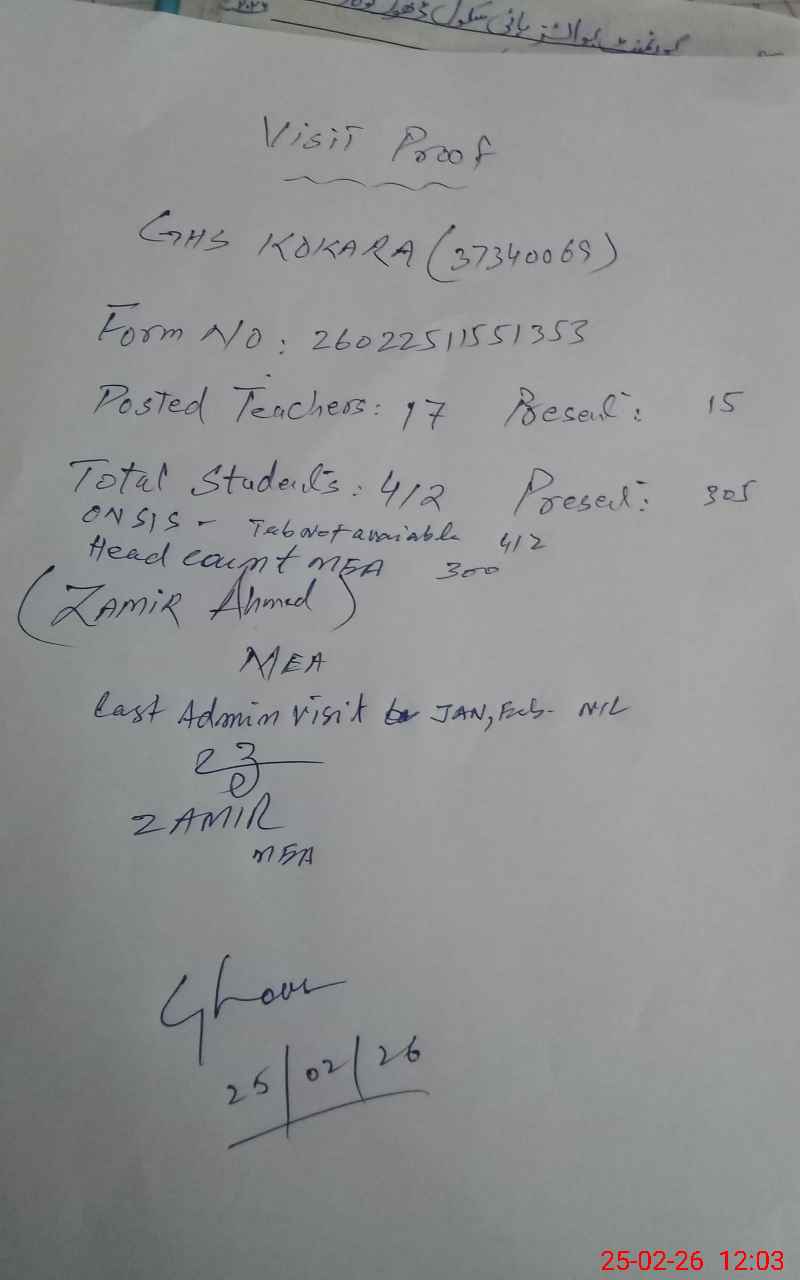 گورنمنٹ بوائز ہائی سکول
Visit Proof
GHS KOKARA (37340069)
Form No: 26022511551353
Posted Teachers: 17 Present: 15
Total Students: 412 Present: 305
ON SIS - Tab Not avaiable 412
Head count MEA 300
(ZAMIR Ahmed)
MEA
Last Admin visit JAN, Feb- NIL
ZAMIR
MEA
25/02/26
25-02-26 12:03